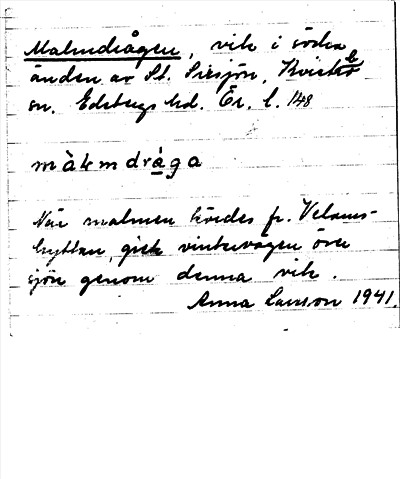 Malmdrågen, vik i södra
änden av St. Sirsjön, Kvistbro
sn. Edsbergs hd. Ör. l. 148
màlmdràga
När malmen kördes fr. Velams-
hyttan, gick vintervägen över
sjön genom denna vik.
Anna Larsson 1941.